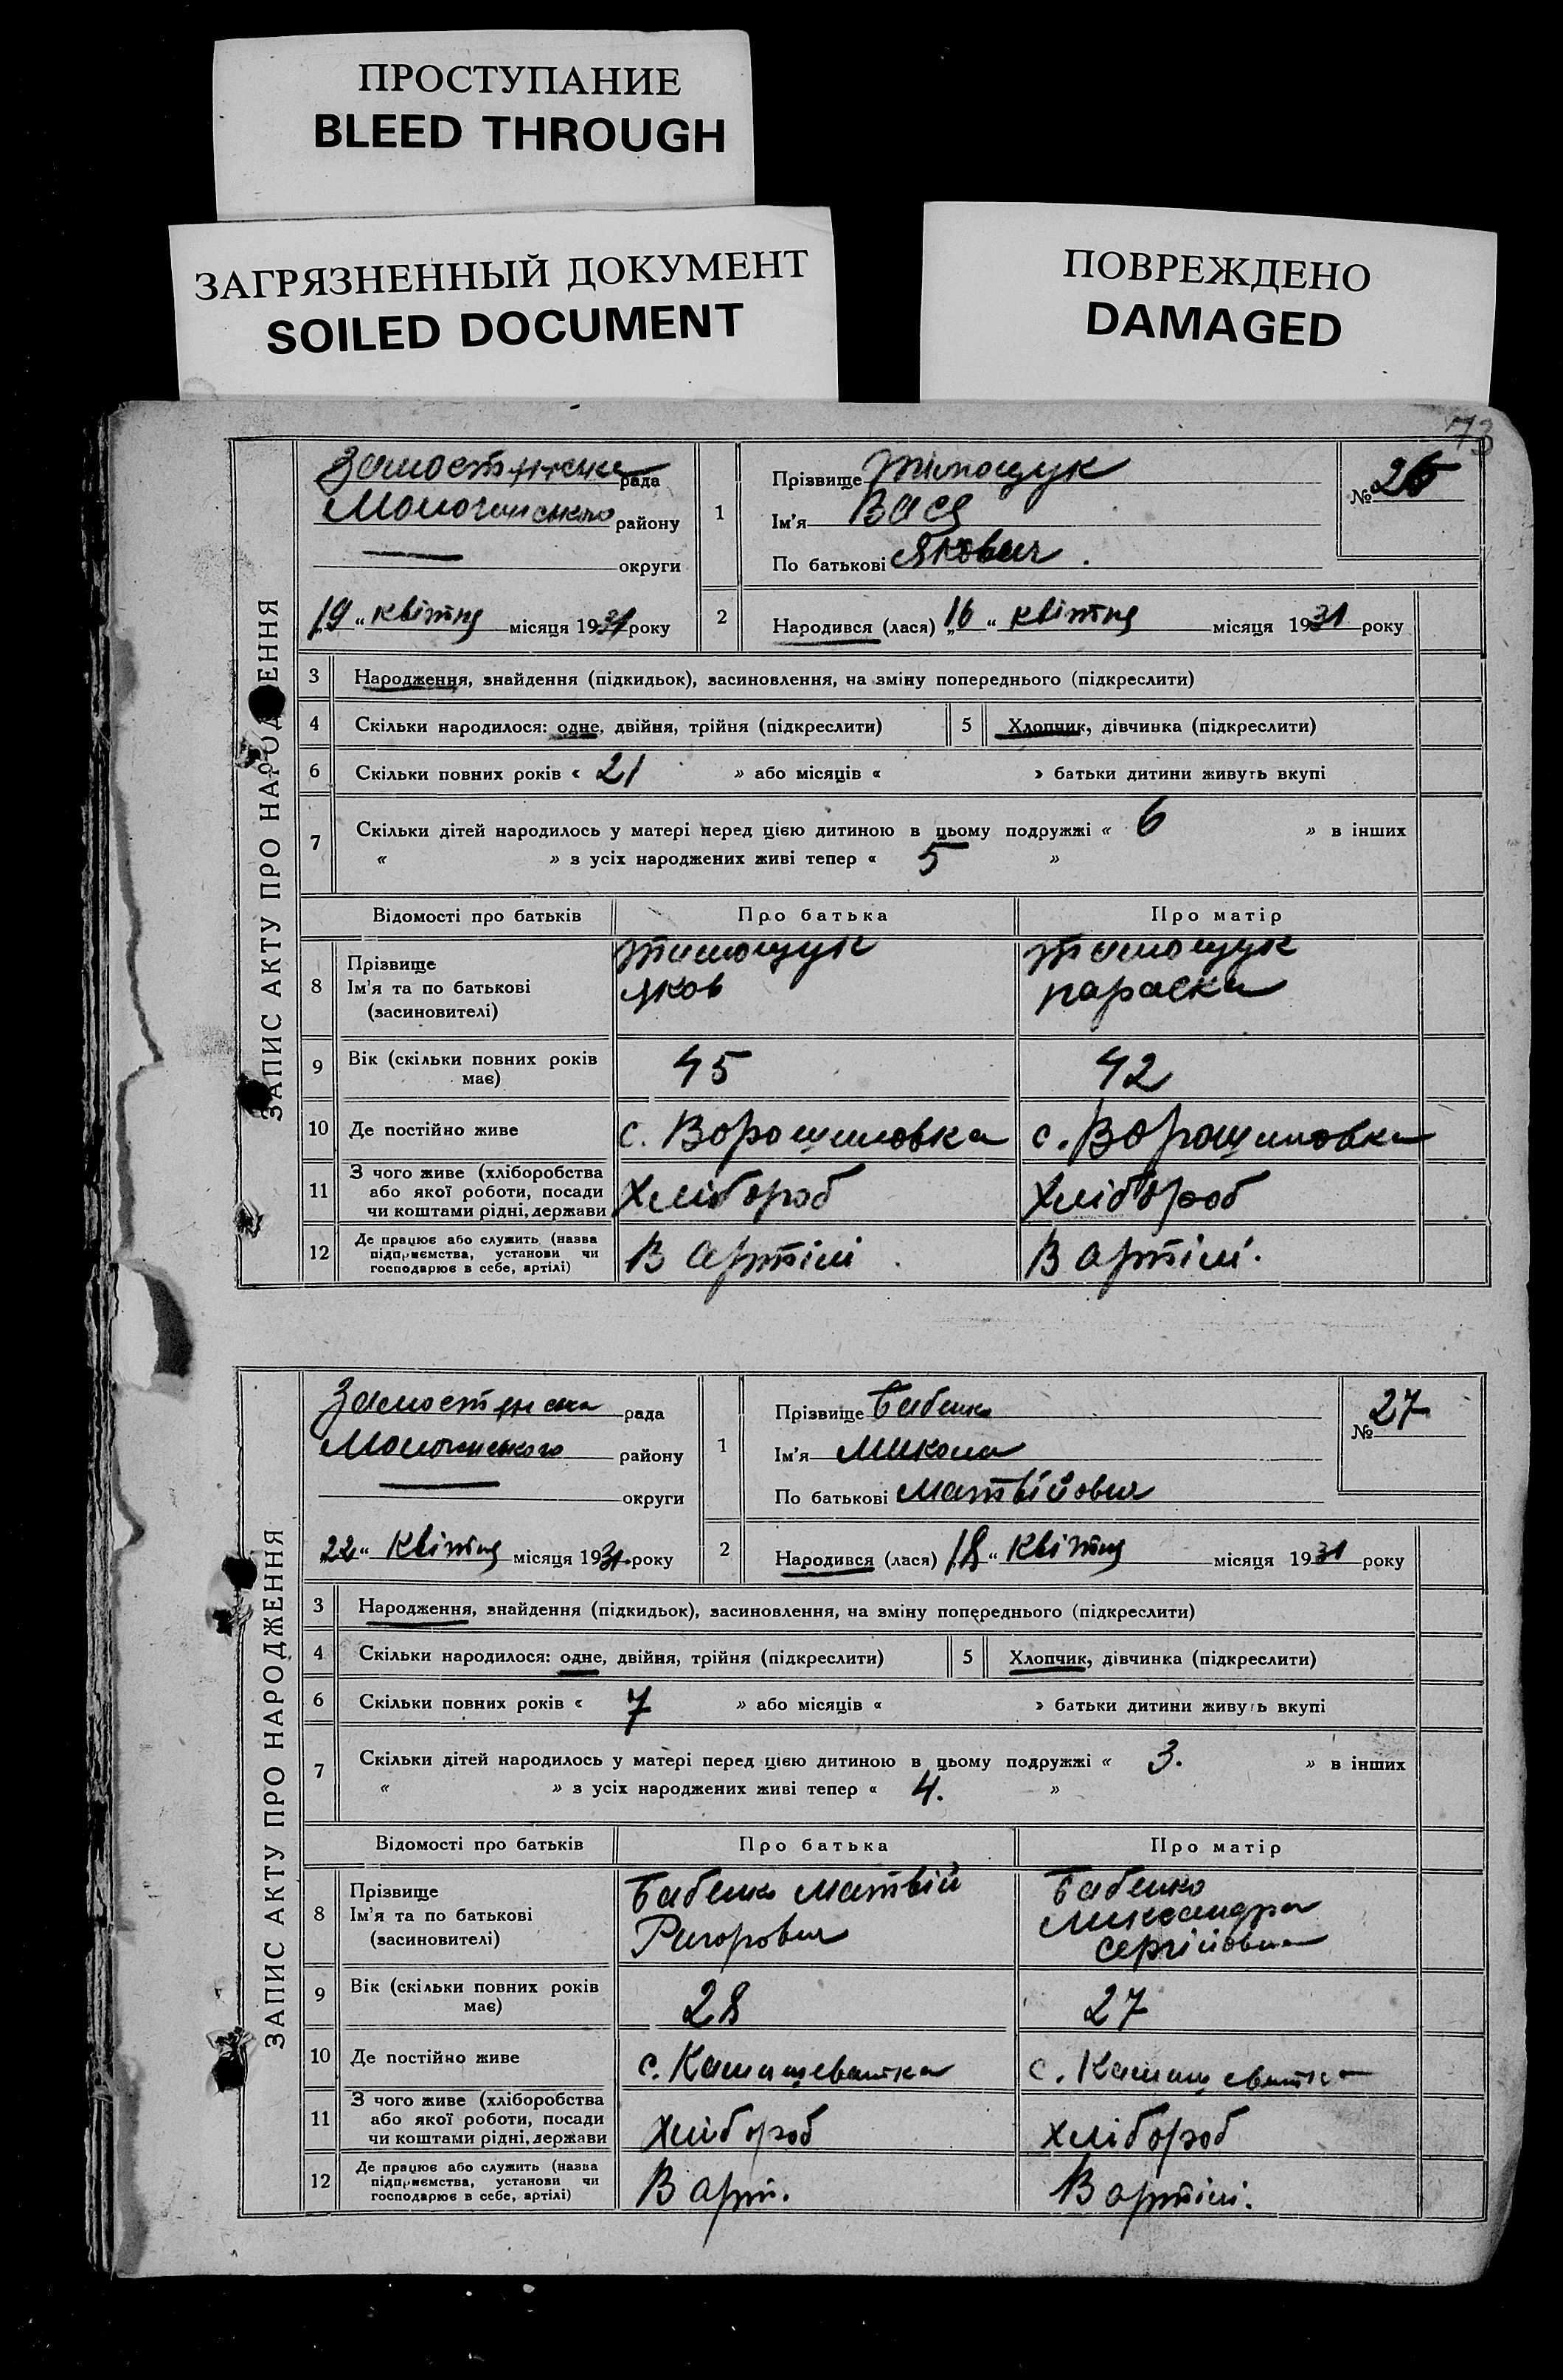 ПРОСТУПАНИЕ
BLEED THROUGH
ЗАГРЯЗНЕННЫЙ ДОКУМЕНТ
SOILED DOCUMENT
ПОВРЕЖДЕНО
DAMAGED
73
ЗАПИС АКТУ ПРО НАРОДЖЕННЯ
рада
району
округи
19 " квітня місяця 1931 року
1
Прізвище Тимощук
Ім'я Вася
По батькові Якович.
№ 26
2
Народився (лася) „16 " квітня місяця 1931 року
3 Народження, знайдення (підкидьок), засиновлення, на зміну попереднього (підкреслити)
4 Скільки народилося: одне, двійня, трійня (підкреслити) 5 Хлопчик, дівчинка (підкреслити)
6 Скільки повних років « 21 » або місяців « » батьки дитини живуть вкупі
7 Скільки дітей народилось у матері перед цією дитиною в цьому подружжі « 6 » в інших
« » з усіх народжених живі тепер « 5 »
Відомості про батьків Про батька Про матір
8 Прізвище
Ім'я та по батькові
(засиновителі)
Тимощук
Яков
Тимощук
Параска
9 Вік (скільки повних років
має) 45 42
10 Де постійно живе с. Ворошиловка с. Ворошиловка
11 З чого живе (хліборобства
або якої роботи, посади
чи коштами рідні, держави
Хлібороб Хлібороб
12 Де працює або служить (назва
підприємства, установи чи
господарює в себе, артілі)
В артілі В артілі.
ЗАПИС АКТУ ПРО НАРОДЖЕННЯ
рада
району
округи
22 " квітня місяця 1931 року
1
Прізвище Бабенко
Ім'я Микола
По батькові Матвійович
№ 27
2
Народився (лася) „18 " квітня місяця 1931 року
3 Народження, знайдення (підкидьок), засиновлення, на зміну попереднього (підкреслити)
4 Скільки народилося: одне, двійня, трійня (підкреслити) 5 Хлопчик, дівчинка (підкреслити)
6 Скільки повних років « 7 » або місяців « » батьки дитини живуть вкупі
7 Скільки дітей народилось у матері перед цією дитиною в цьому подружжі « 3. » в інших
« » з усіх народжених живі тепер « 4. »
Відомості про батьків Про батька Про матір
8 Прізвище
Ім'я та по батькові
(засиновителі)
Бабенко Матвій
Бабенко
Сергійовна
9 Вік (скільки повних років
має) 28 27
10 Де постійно живе с. с.
11 З чого живе (хліборобства
або якої роботи, посади
чи коштами рідні, держави
Хлібороб хлібороб
12 Де працює або служить (назва
підприємства, установи чи
господарює в себе, артілі)
В арт. В артілі.